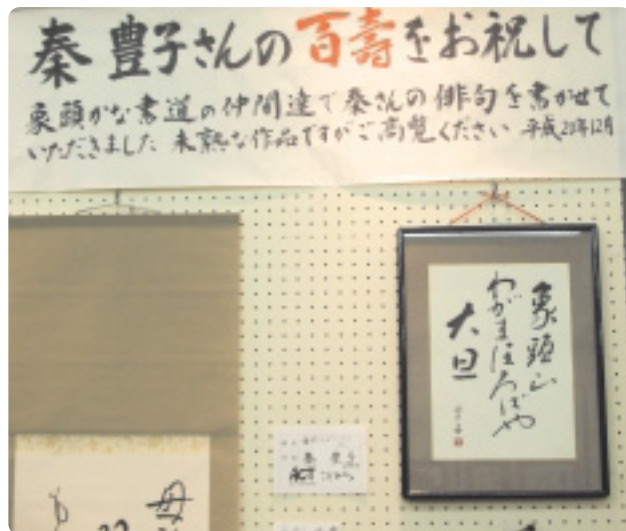 秦 豊子さんの百壽をお祝して
象頭かな書道の仲間達で秦さんの俳句を書かせて
いただきました 未熟な作品ですがご高覧ください 平成23年12月
象頭山
わがまほろばや
大旦
母